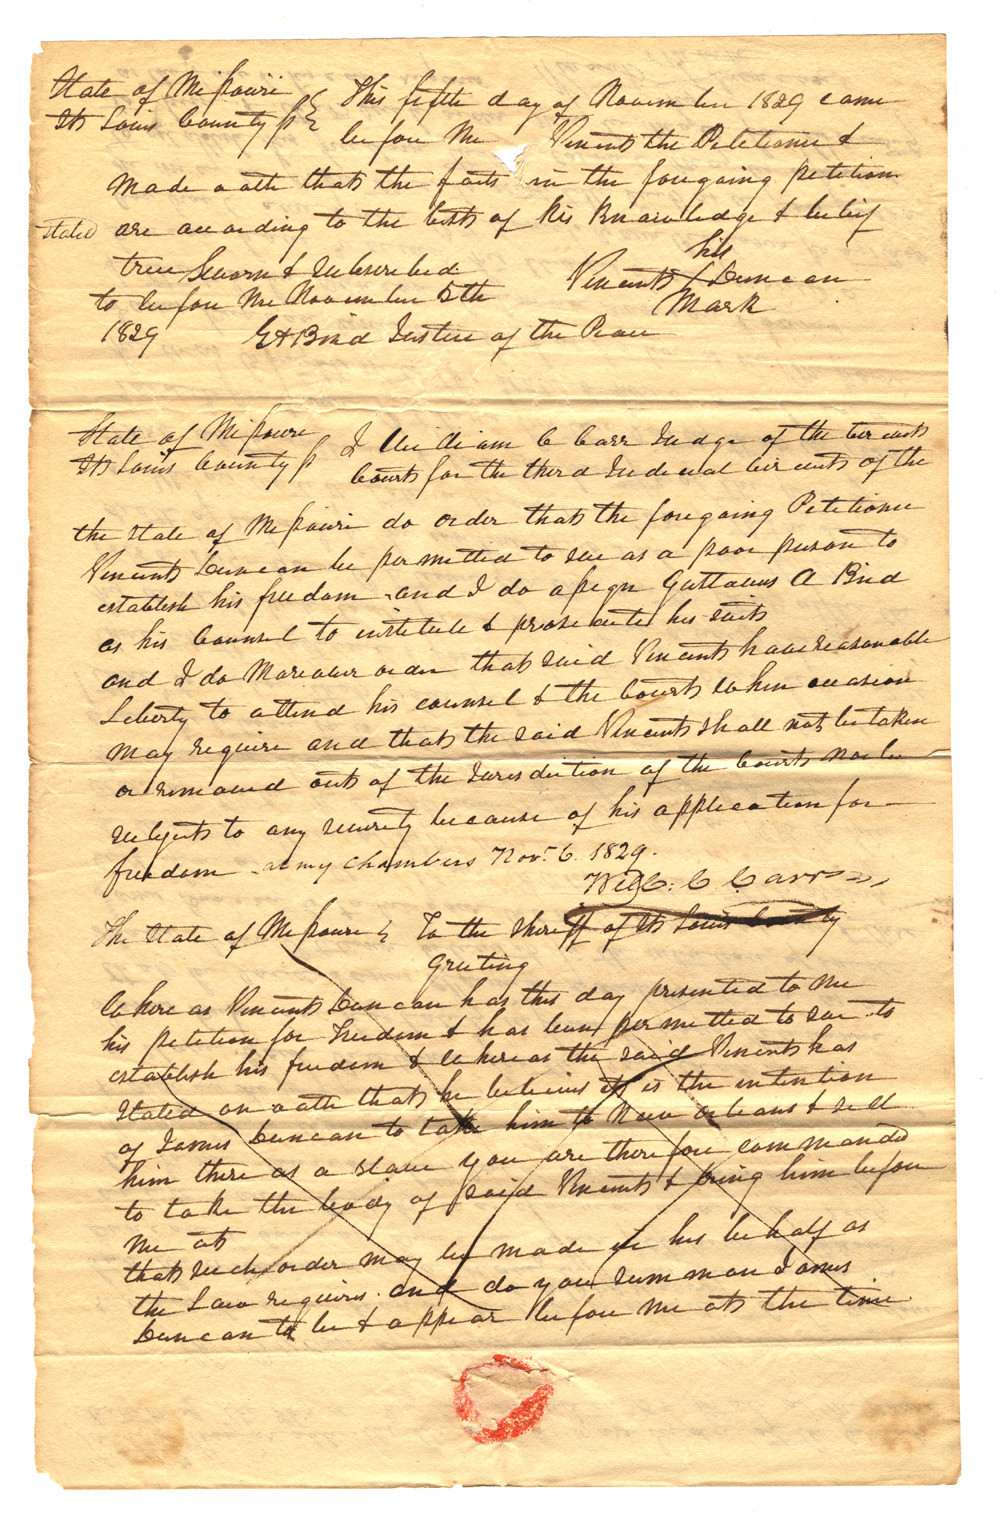 State of Missouri } This fifth day of November 1829 came
St Louis County ss } before me Vincent the Petitioner &
made oath that the facts in the foregoing petition
stated are according to the best of his knowledge & belief
true Sworn & subscribed
his
Vincent / Duncan
mark
to before me November 5th
1829 G A Bird Justice of the Peace
State of Missouri
St Louis County ss
I William C Carr Judge of the Circuit
Court for the third Judicial circuit of the
the State of Missouri do order that the foregoing Petitioner
Vincent Duncan be permitted to sue as a poor person to
establish his freedom and I do assign Gustavus A Bird
as his Counsel to institute & prosecute his suit
and I do moreover order that said Vincent have reasonable
Liberty to attend his counsel & the Court when occasion
may require and that the said Vincent shall not be taken
or removed out of the Jurisdiction of the Court nor be
subject to any severity because of his application for
freedom at my Chambers Nov. 6. 1829.
Will: C Carr
The State of Missouri } To the Sheriff of St Louis County
Greeting
Whereas Vincent Duncan has this day presented to me
his petition for Freedom & has been permitted to sue to
establish his freedom & whereas the said Vincent has
stated on oath that he believes it is the intention
of James Duncan to take him to New Orleans & sell
him there as a slave you are therefore commanded
to take the body of said Vincent & bring him before
me at
that such order may be made in his behalf as
the Law requires. and do you summon James
Duncan to be & appear before me at the time